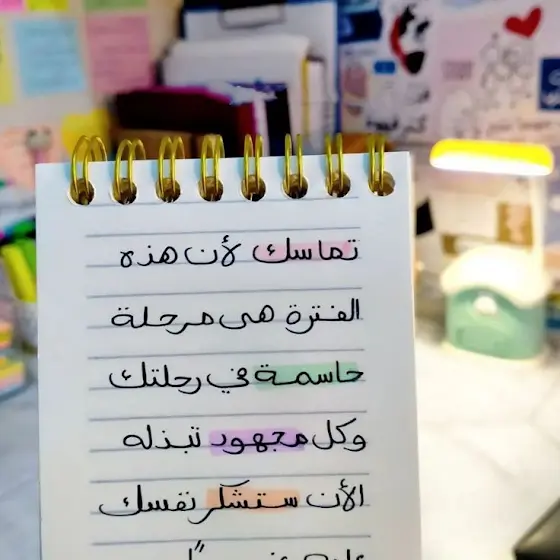 تماسك لأن هذه
الفترة هى مرحلة
حاسمة في رحلتك
وكل مجهود تبذله
الأن ستشكر نفسك